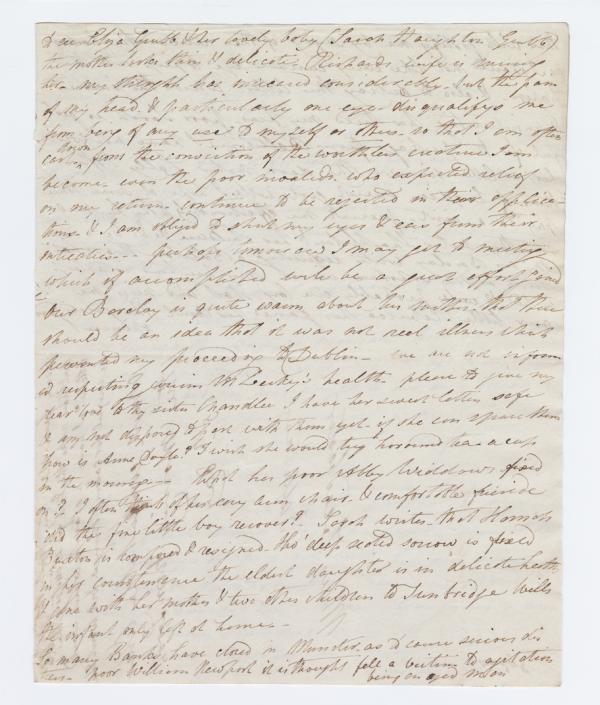 Dear Eliza Grubb & her lovely baby (Sarah Haughton Grubb)
the mother looks thin & delicate. Richards wife is nursing
her. my strength has increased considerably, but the pain
of my head & particularly one eye disqualifys me
from being of any use to myself or others. so that I am often
cast down from the conviction of the worthless creature I am
become. even the poor invalids who expected relief
on my return continue to be rejected in their applica-
tions & I am obliged to shut my eyes & ears from their
intreaties -- perhaps tomorrow I may get to meeting
which if accomplished will be a great effort
our Barclay is quite warm about his mother that there
should be an idea that it was not reel illness which
prevented my proceeding to Dublin - we are not inform
ed respecting cousin Leckey's health - please to give my
dear love to thy sister Chandlee I have her sweet letters safe
& am not disposed to part with them yet - if she can spare them
how is Anne Doyle? I wish she would try horound tea a cup
in the morning -- What has poor Abby Widdows fixed
on? I often think of his easy arm chair & comfortable fireside
did the fine little boy recover? - Sarah writes that Hannah
is composed & resigned. tho' deep seated sorrow is fixed
in his countenance the eldest daughter is in delicate health
& gone with her mother & two other children to Tunbridge Wells
the infant only left at home -
So many Banks have closed in Munster, as to cause serious dis
tress - poor William Newport it is thought fell a victim to agitation
being an aged man